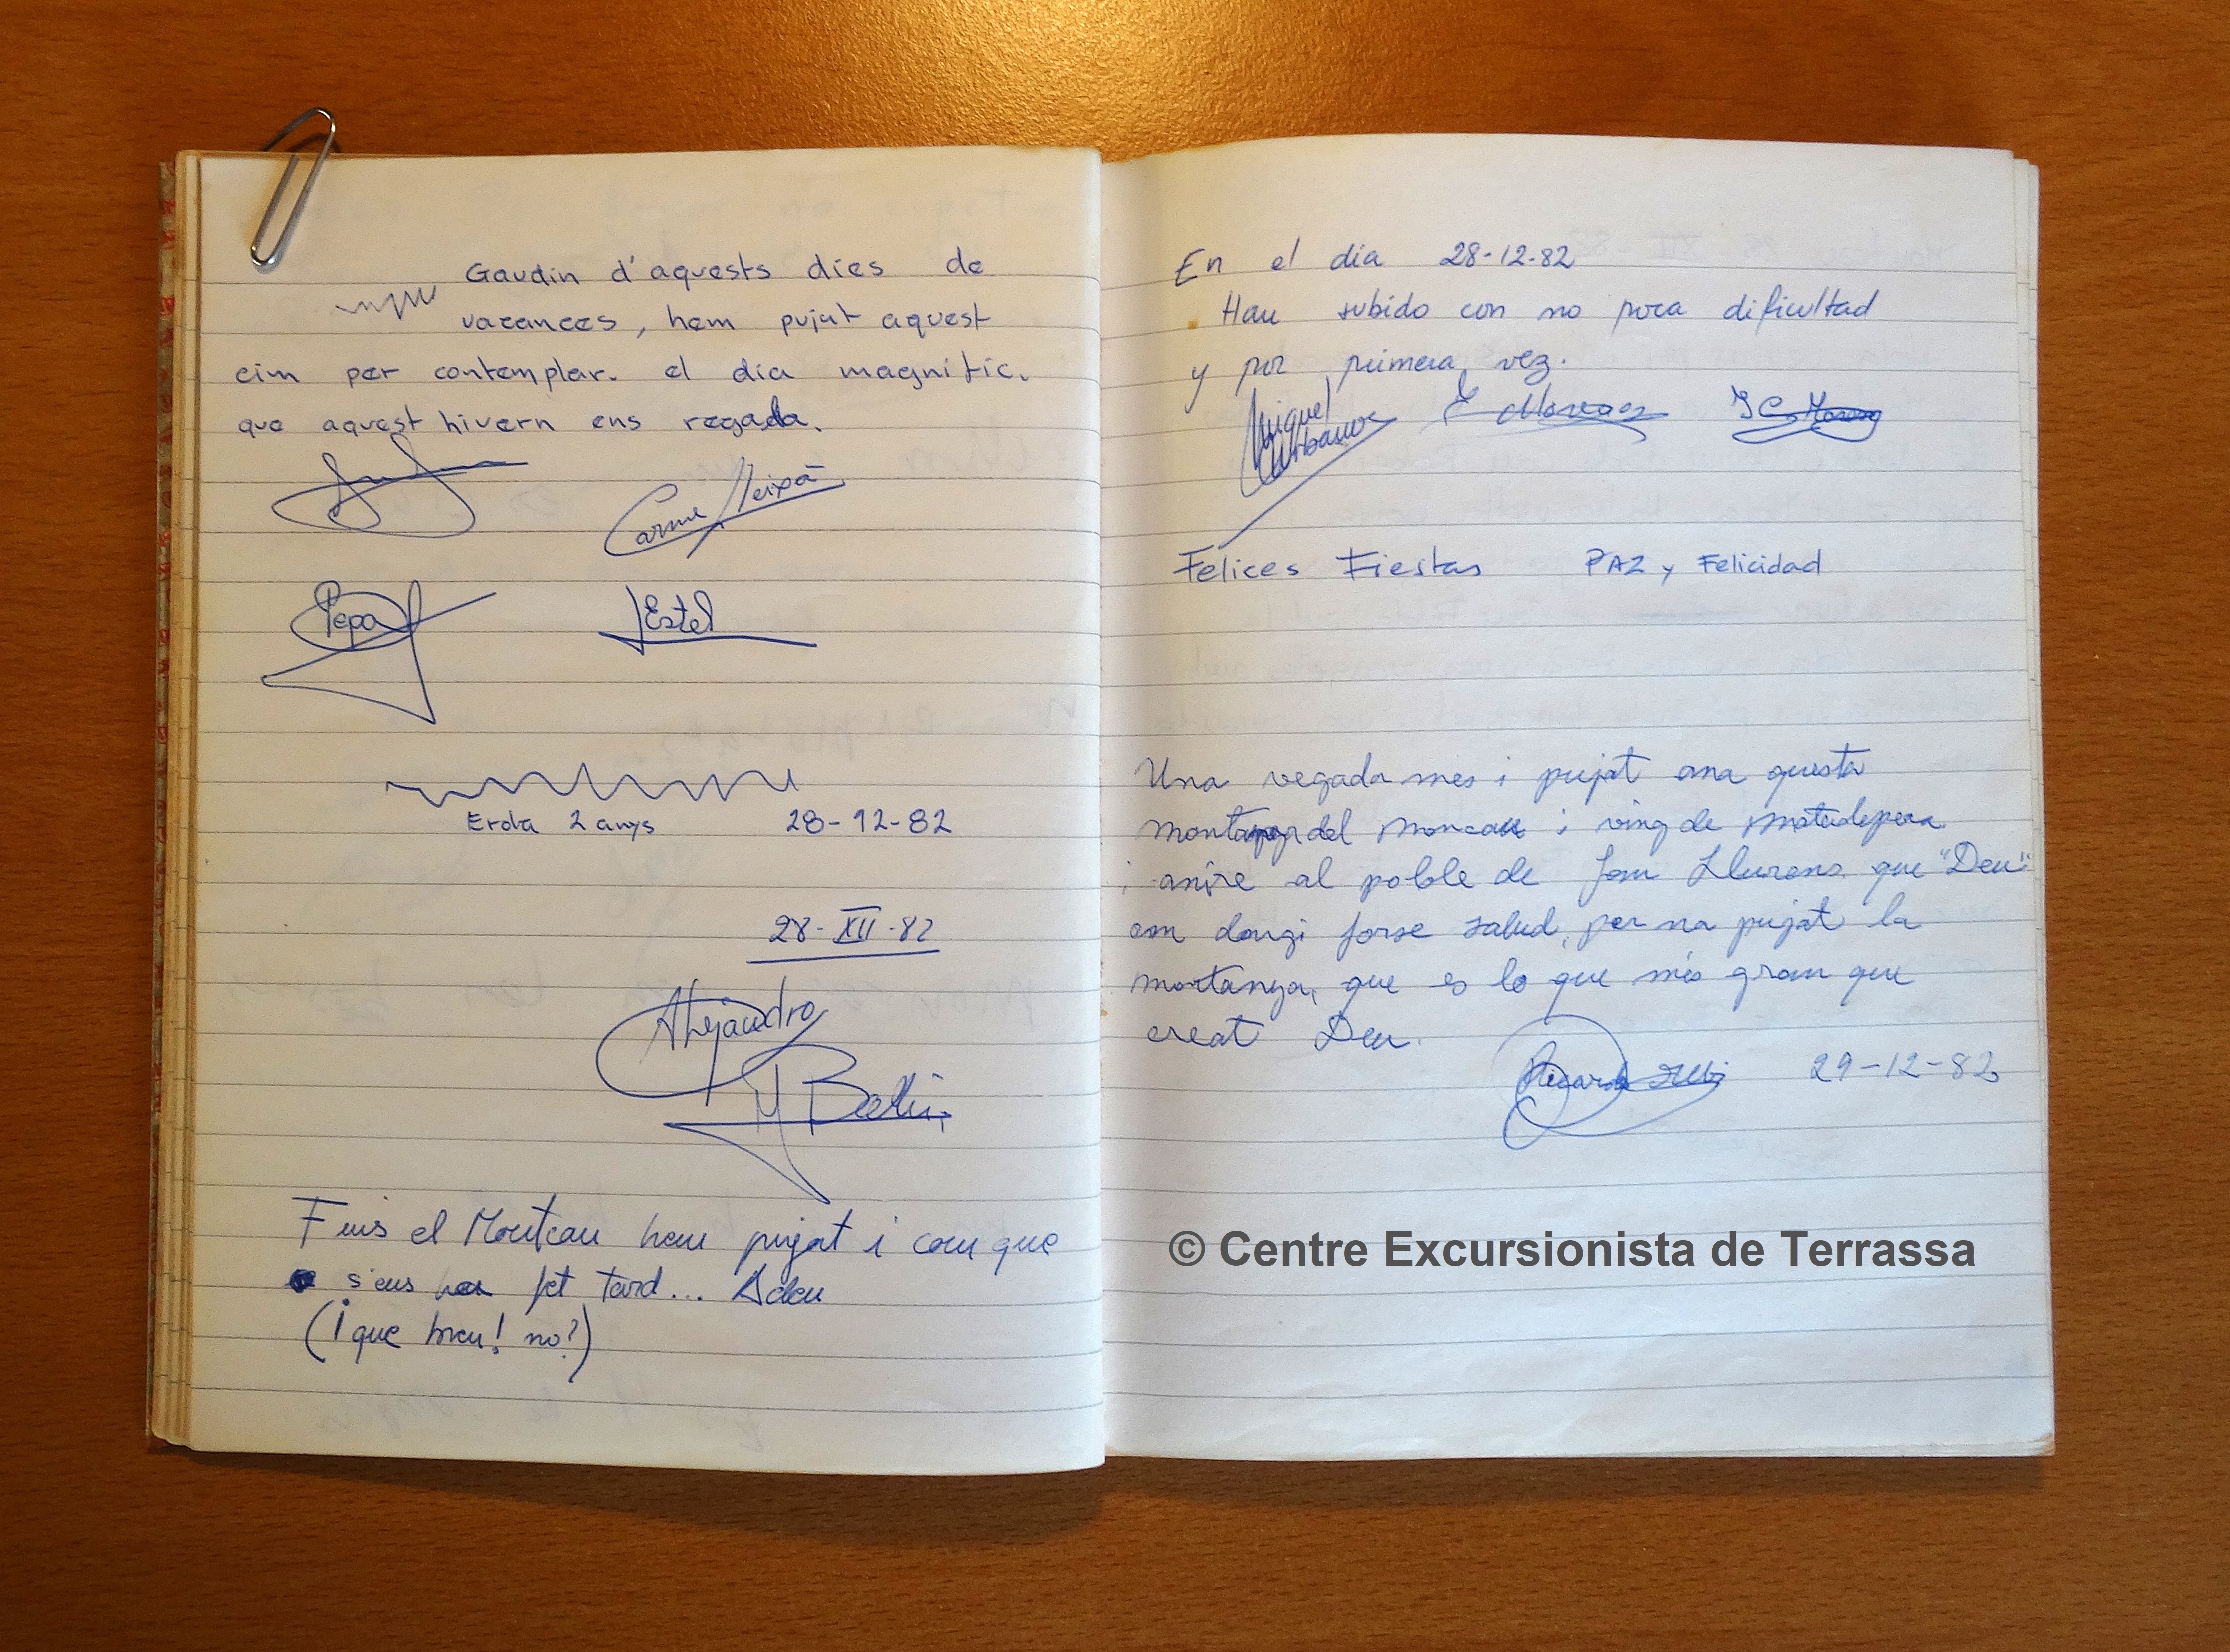 Gaudin d'aquests dies de
vacances, hem pujat aquest
cim per contemplar. el dia magnific.
que aquest hivern ens regada.
Carme Lleixà
Pepa
Estel
Erola 2 anys 28-12-82
28-XII-82
Alejandro
M
Fins el Montcau hem pujat i com que
s'ens ha fet tard... Adeu
(i que breu! no?)
En el dia 28-12-82
Han subido con no poca dificultad
y por primera vez.
Miquel
Urbanos
Felices Fiestas PAZ y Felicidad
Una vegada mes i pujat ana questa
montanya del moncau i ving de matadepera
i anire al poble de San Llurens que "Deu"
em dongi forse salud, per na pujat la
montanya, que es lo que més gran que
creat Deu.
Ricard 29-12-82
© Centre Excursionista de Terrassa